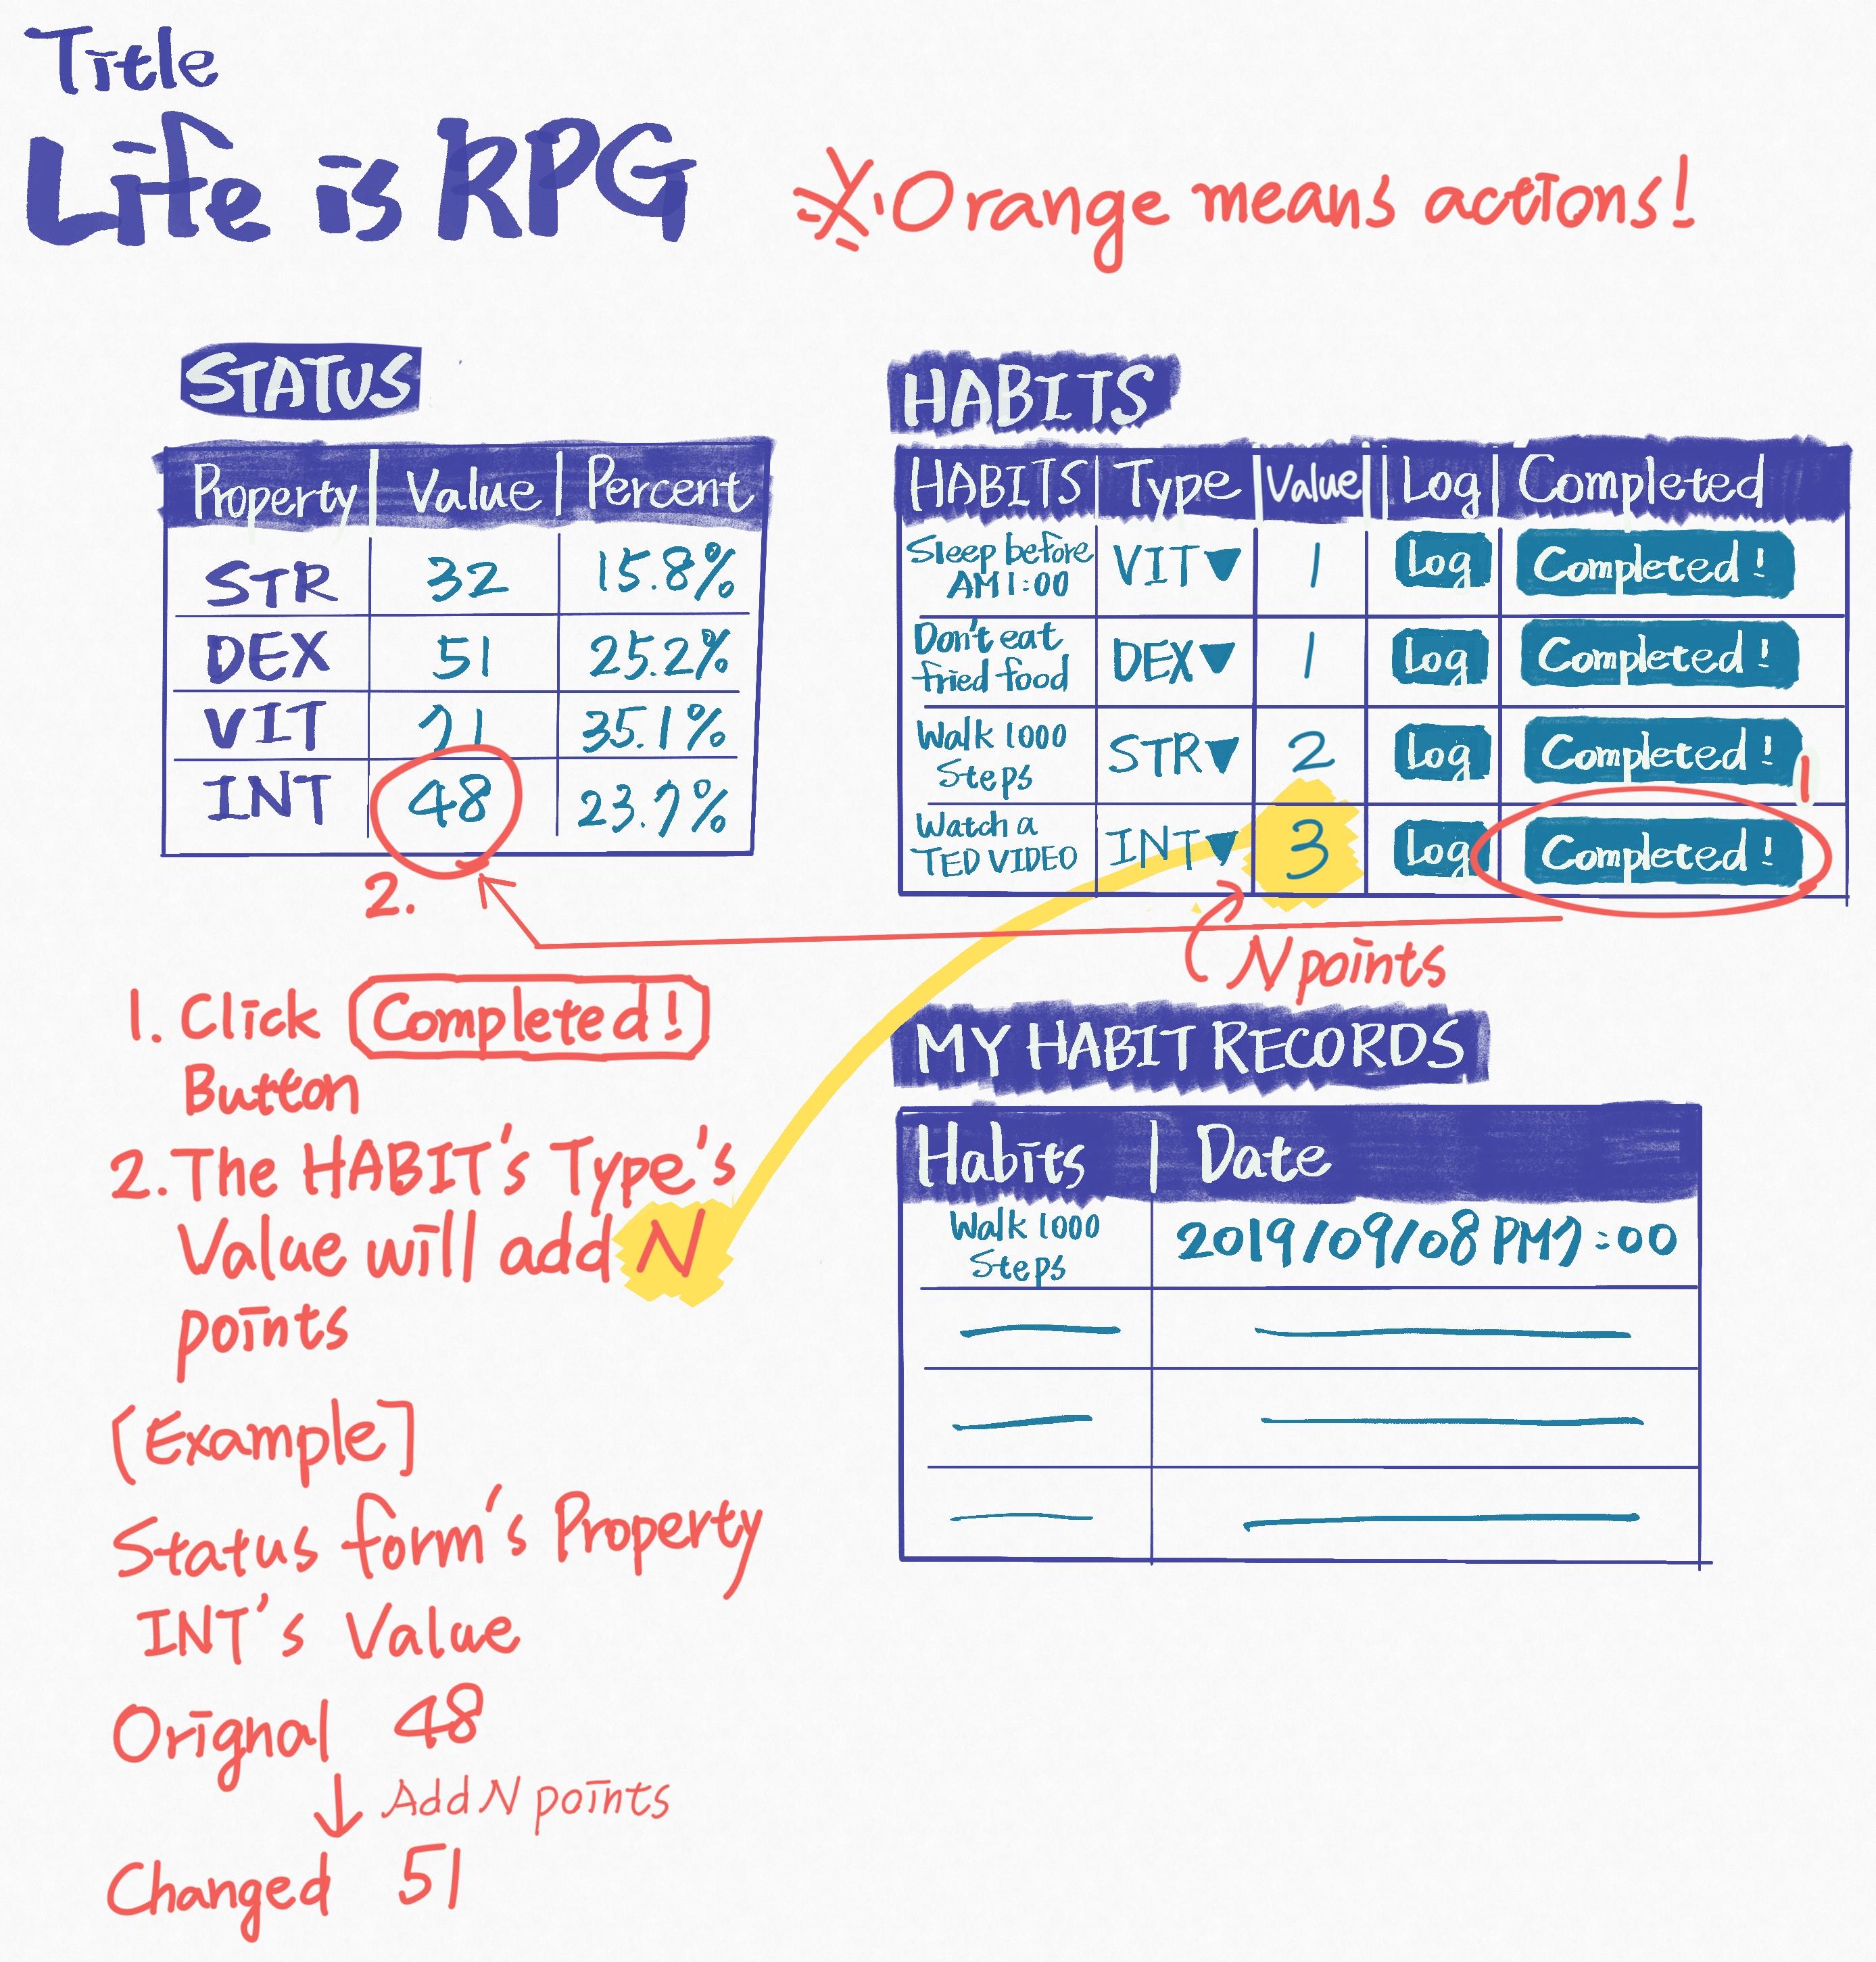 Title
Life is RPG
※Orange means actions!
STATUS
Property | Value | Percent
STR 32 15.8%
DEX 51 25.2%
VIT 71 35.1%
INT 48 23.7%
2.
HABITS
HABITS | Type | Value || Log | Completed
Sleep before
AM 1:00
VIT▼ 1 Log Completed!
Don't eat
fried food
DEX▼ 1 Log Completed!
Walk 1000
Steps
STR▼ 2 Log Completed!
1
Watch a
TED VIDEO
INT▼ 3 Log Completed!
N points
1. Click Completed!
Button
2. The HABIT's Type's
Value will add N
points
[Example]
Status form's Property
INT's Value
Orignal 48
↓ Add N points
Changed 51
MY HABIT RECORDS
Habits | Date
Walk 1000
Steps
2019/09/08 PM7:00